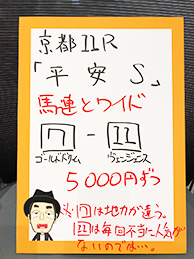 京都11R
「平安S」
馬連とワイド
7-11
ゴールドドリーム ヴェンジェンス
5000円ずつ
※7は地力が違う。
11は毎回不当に人気が
ないのでは…。